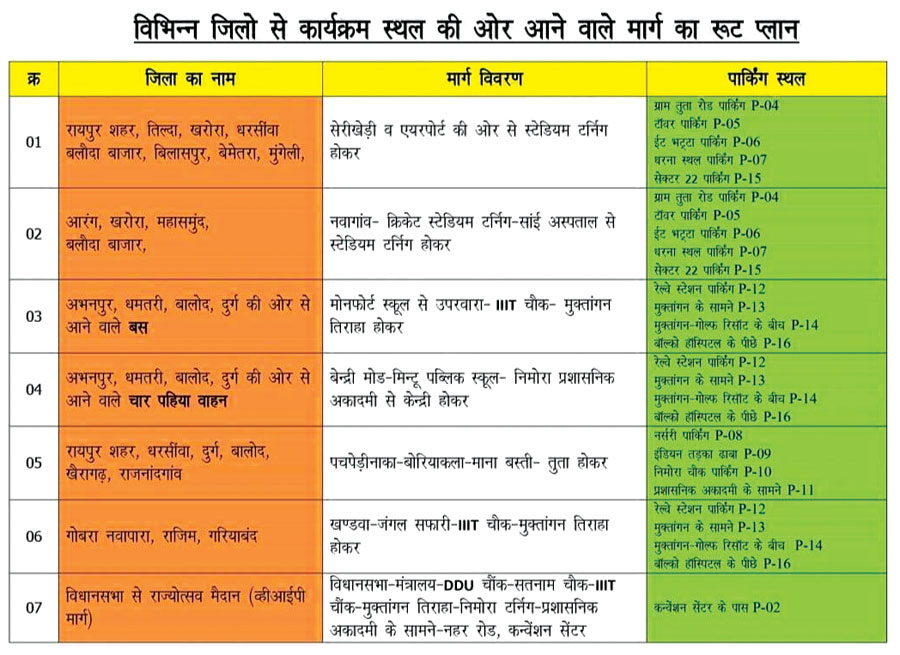 विभिन्न जिलो से कार्यक्रम स्थल की ओर आने वाले मार्ग का रूट प्लान
क्र
जिला का नाम
मार्ग विवरण
पार्किंग स्थल
01
रायपुर शहर, तिल्दा, खरोरा, धरसींवा
बलौदा बाजार, बिलासपुर, बेमेतरा, मुंगेली,
सेरीखेड़ी व एयरपोर्ट की ओर से स्टेडियम टर्निग
होकर
ग्राम तुता रोड पार्किंग P-04
टॉवर पार्किंग P-05
ईट भट्टा पार्किंग P-06
धरना स्थल पार्किंग P-07
सेक्टर 22 पार्किंग P-15
02
आरंग, खरोरा, महासमुंद,
बलौदा बाजार,
नवागांव- क्रिकेट स्टेडियम टर्निग-सांई अस्पताल से
स्टेडियम टर्निग होकर
ग्राम तुता रोड पार्किंग P-04
टॉवर पार्किंग P-05
ईट भट्टा पार्किंग P-06
धरना स्थल पार्किंग P-07
सेक्टर 22 पार्किंग P-15
03
अभनपुर, धमतरी, बालोद, दुर्ग की ओर से
आने वाले बस
मोनफोर्ट स्कूल से उपरवारा- IIIT चौक- मुक्तांगन
तिराहा होकर
रेल्वे स्टेशन पार्किंग P-12
मुक्तांगन के सामने P-13
मुक्तांगन-गोल्फ रिसॉट के बीच P-14
बॉल्को हॉस्पिटल के पीछे P-16
04
अभनपुर, धमतरी, बालोद, दुर्ग की ओर से
आने वाले चार पहिया वाहन
बेन्द्री मोड-मिन्टू पब्लिक स्कूल- निमोरा प्रशासनिक
अकादमी से केन्द्री होकर
रेल्वे स्टेशन पार्किंग P-12
मुक्तांगन के सामने P-13
मुक्तांगन-गोल्फ रिसॉट के बीच P-14
बॉल्को हॉस्पिटल के पीछे P-16
05
रायपुर शहर, धरसींवा, दुर्ग, बालोद,
खैरागढ़, राजनांदगांव
पचपेड़ीनाका-बोरियाकला-माना बस्ती- तुता होकर
नर्सरी पार्किंग P-08
इंडियन तड़का ढाबा P-09
निमोरा चौक पार्किंग P-10
प्रशासनिक अकादमी के सामने P-11
06
गोबरा नवापारा, राजिम, गरियाबंद
खण्डवा-जंगल सफारी-IIIT चौक-मुक्तांगन तिराहा
होकर
रेल्वे स्टेशन पार्किंग P-12
मुक्तांगन के सामने P-13
मुक्तांगन-गोल्फ रिसॉट के बीच P-14
बॉल्को हॉस्पिटल के पीछे P-16
07
विधानसभा से राज्योत्सव मैदान (व्हीआईपी
मार्ग)
विधानसभा-मंत्रालय-DDU चौंक-सतनाम चौक-IIIT
चौंक-मुक्तांगन तिराहा-निमोरा टर्निग-प्रशासनिक
अकादमी के सामने-नहर रोड, कन्वेंशन सेंटर
कन्वेंशन सेंटर के पास P-02